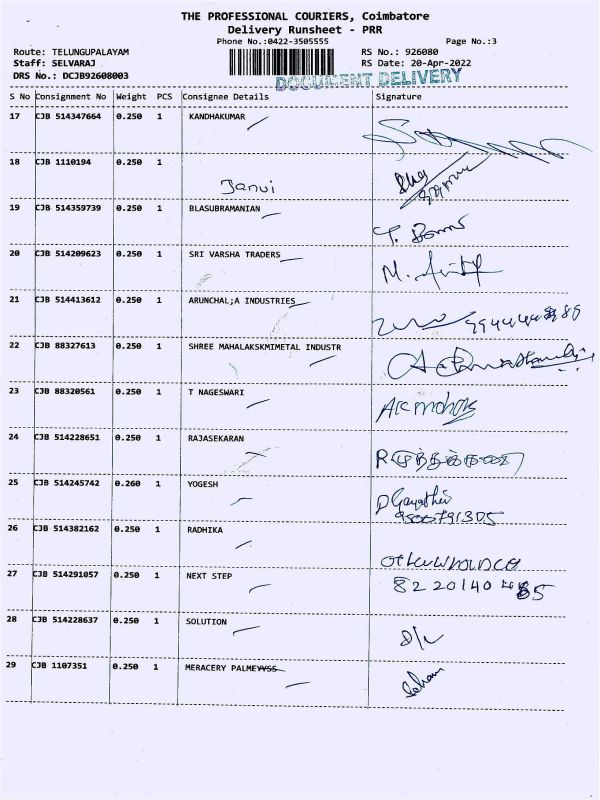 THE PROFESSIONAL COURIERS, Coimbatore
Delivery Runsheet - PRR
Phone No.:0422-3505555 Page No.:3
Route: TELUNGUPALAYAM RS No.: 926080
Staff: SELVARAJ RS Date: 20-Apr-2022
DRS No.: DCJB92608003 DOCUMENT DELIVERY
S No Consignment No Weight PCS Consignee Details Signature
17 CJB 514347664 0.250 1 KANDHAKUMAR
18 CJB 1110194 0.250 1
Janvi
19 CJB 514359739 0.250 1 BLASUBRAMANIAN
20 CJB 514209623 0.250 1 SRI VARSHA TRADERS
M.
21 CJB 514413612 0.250 1 ARUNCHAL;A INDUSTRIES
22 CJB 88327613 0.250 1 SHREE MAHALAKSKMIMETAL INDUSTR
23 CJB 88320561 0.250 1 T NAGESWARI
24 CJB 514228651 0.250 1 RAJASEKARAN
25 CJB 514245742 0.260 1 YOGESH
D Gayathri
9500791305
26 CJB 514382162 0.250 1 RADHIKA
27 CJB 514291057 0.250 1 NEXT STEP
28 CJB 514228637 0.250 1 SOLUTION
29 CJB 1107351 0.250 1 MERACERY PALMEVSS